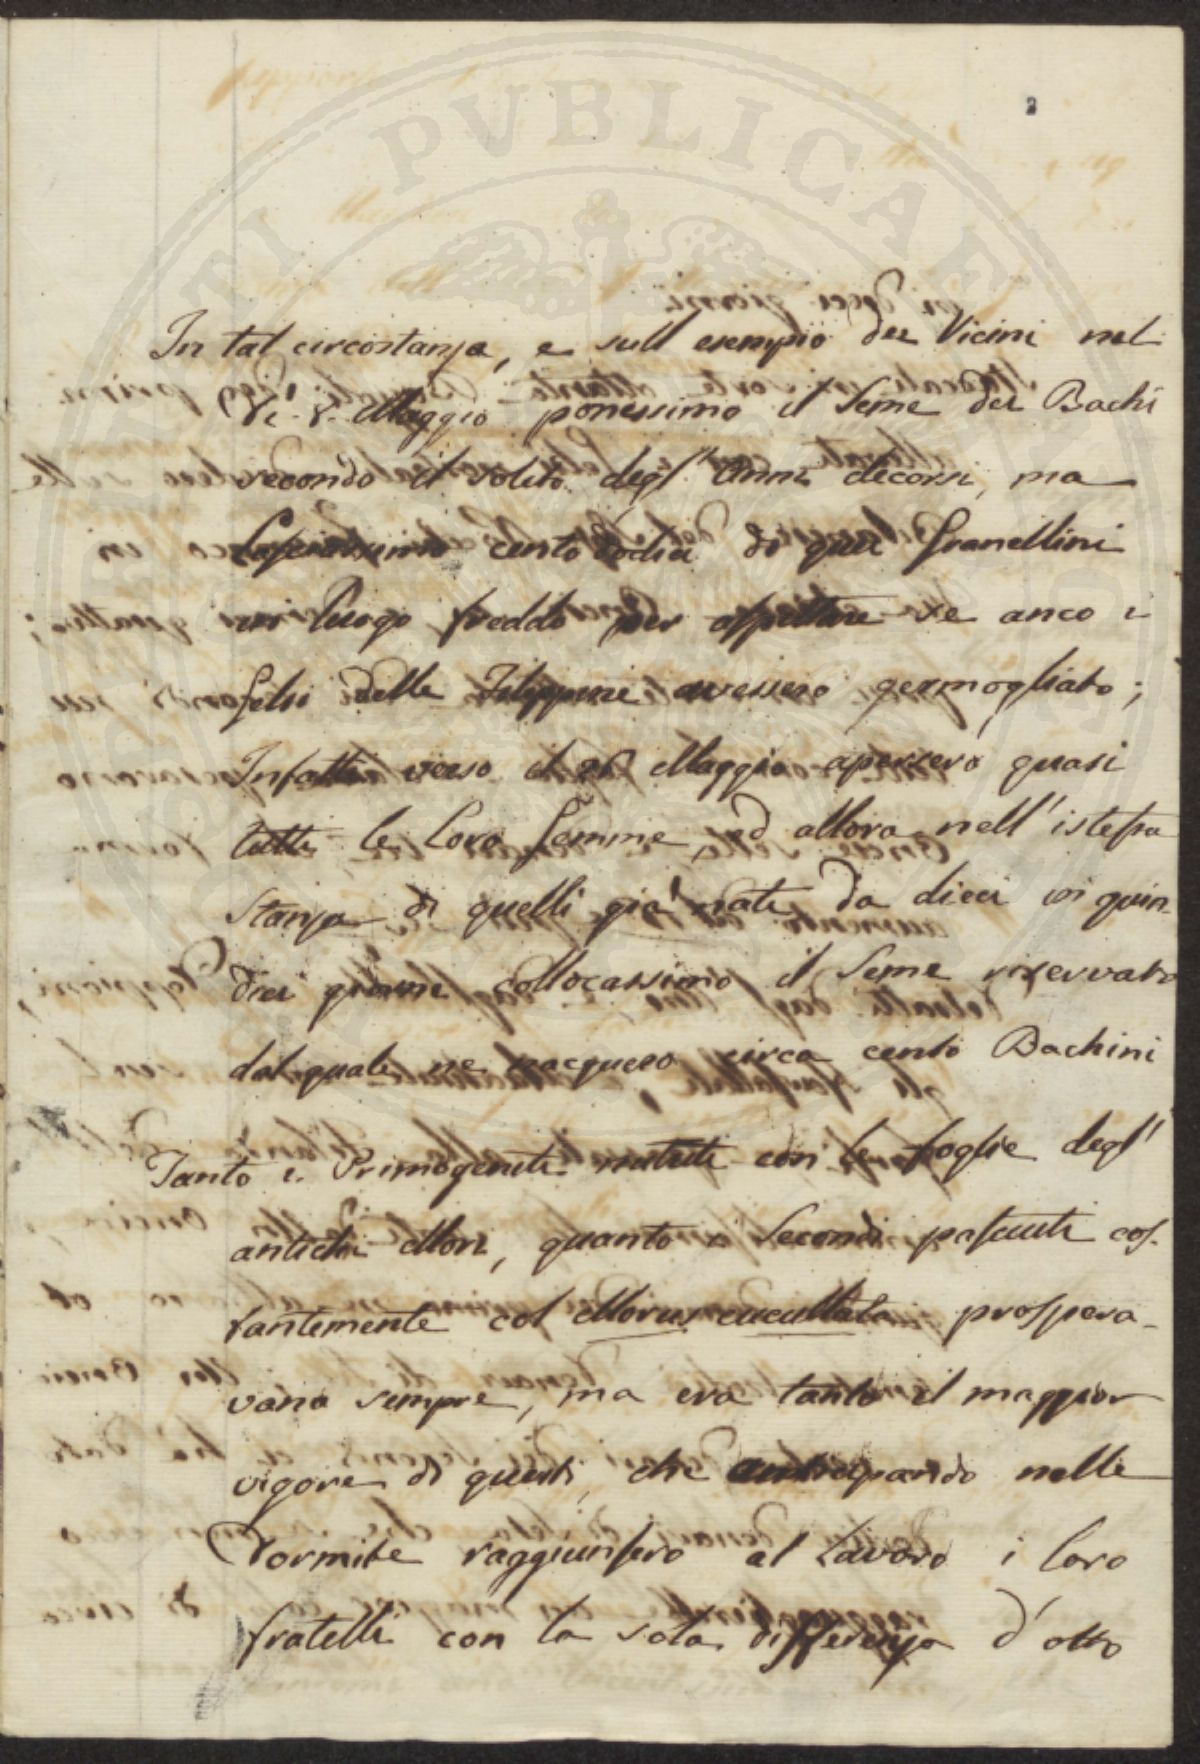 2
In tal circostanza, e sull'esempio dei Vicini nel
dì 8. Maggio ponessimo il Seme dei Bachi
secondo il solito degl'Anni decorsi, ma
lasciassimo cento dodici di quei Granellini
in luogo freddo per aspettare se anco i
Gelsi delle Filippine avessero germogliato;
Infatti verso il Maggio apersero quasi
tutti le loro Gemme, ed allora nell'istessa
Stanza di quelli già nati da dieci in quin-
dici giorni collocassimo il Seme riservato
dal quale ne nacquero circa cento Bachini
Tanto i Primogeniti nutriti con le foglie degl'
antichi Mori, quanto i Secondi pasciuti cos-
tantemente col Morus cucullata prospera-
vano sempre, ma era tanto il maggior
vigore di questi, che anticipando nelle
Dormite raggiunsero al Lavoro i loro
fratelli con la sola differenza d'otto